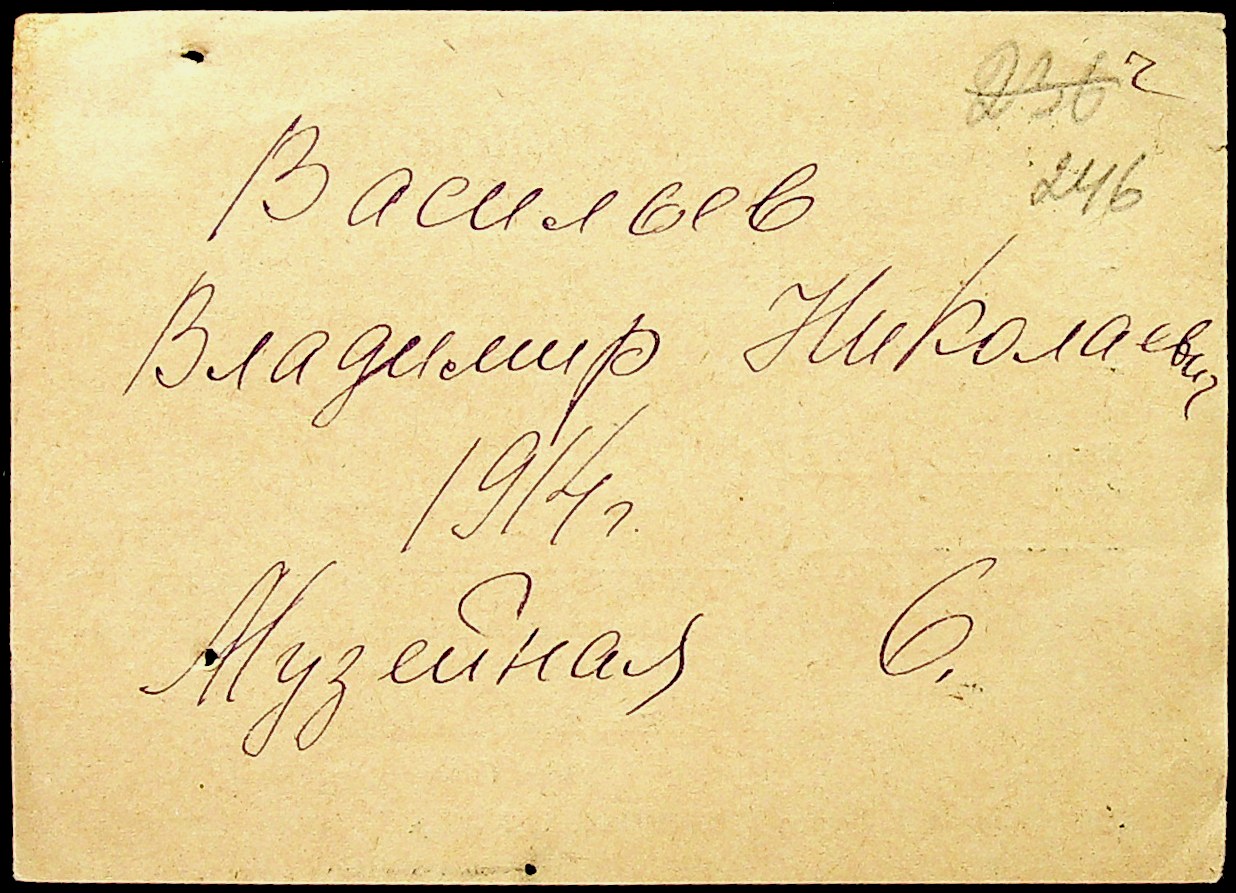 236 ч
246
Васильев
Владимир Николаевич
1914 г.
Музейная 6.